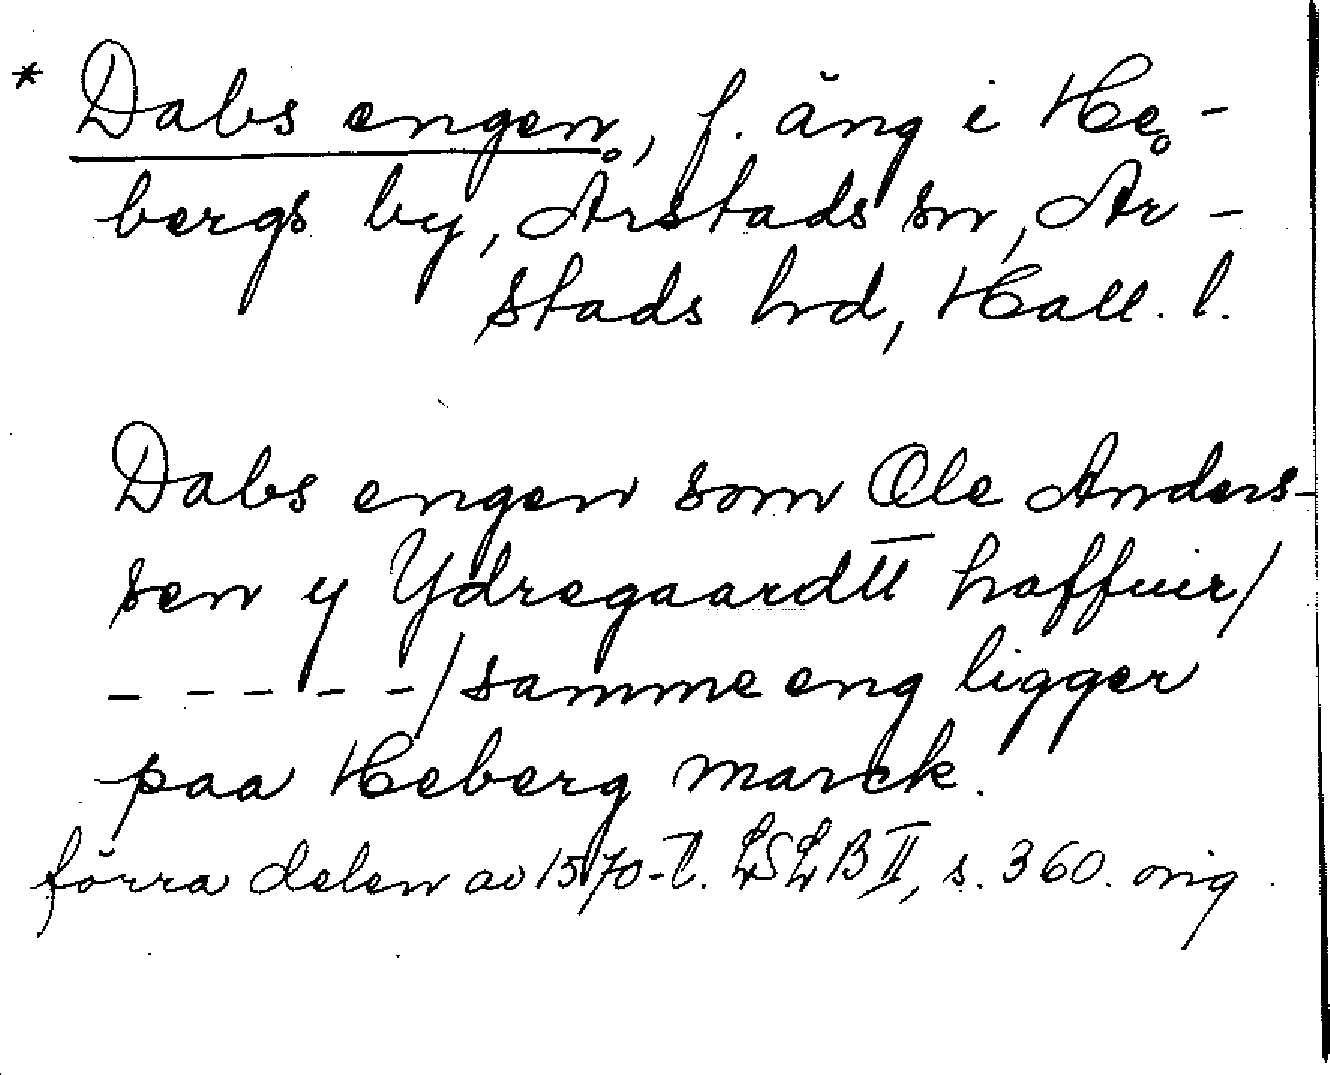 * Dabs engen, f. äng i He-
bergs by, Årstads sn, År-
stads hrd, Hall. l.
Dabs engen som Ole Anders-
sen y Ydregaardtt haffuer/
- - - - - -/samme eng ligger
paa Heberg marck.
förra delen av 1570-t. LSLB II, s. 360. orig.